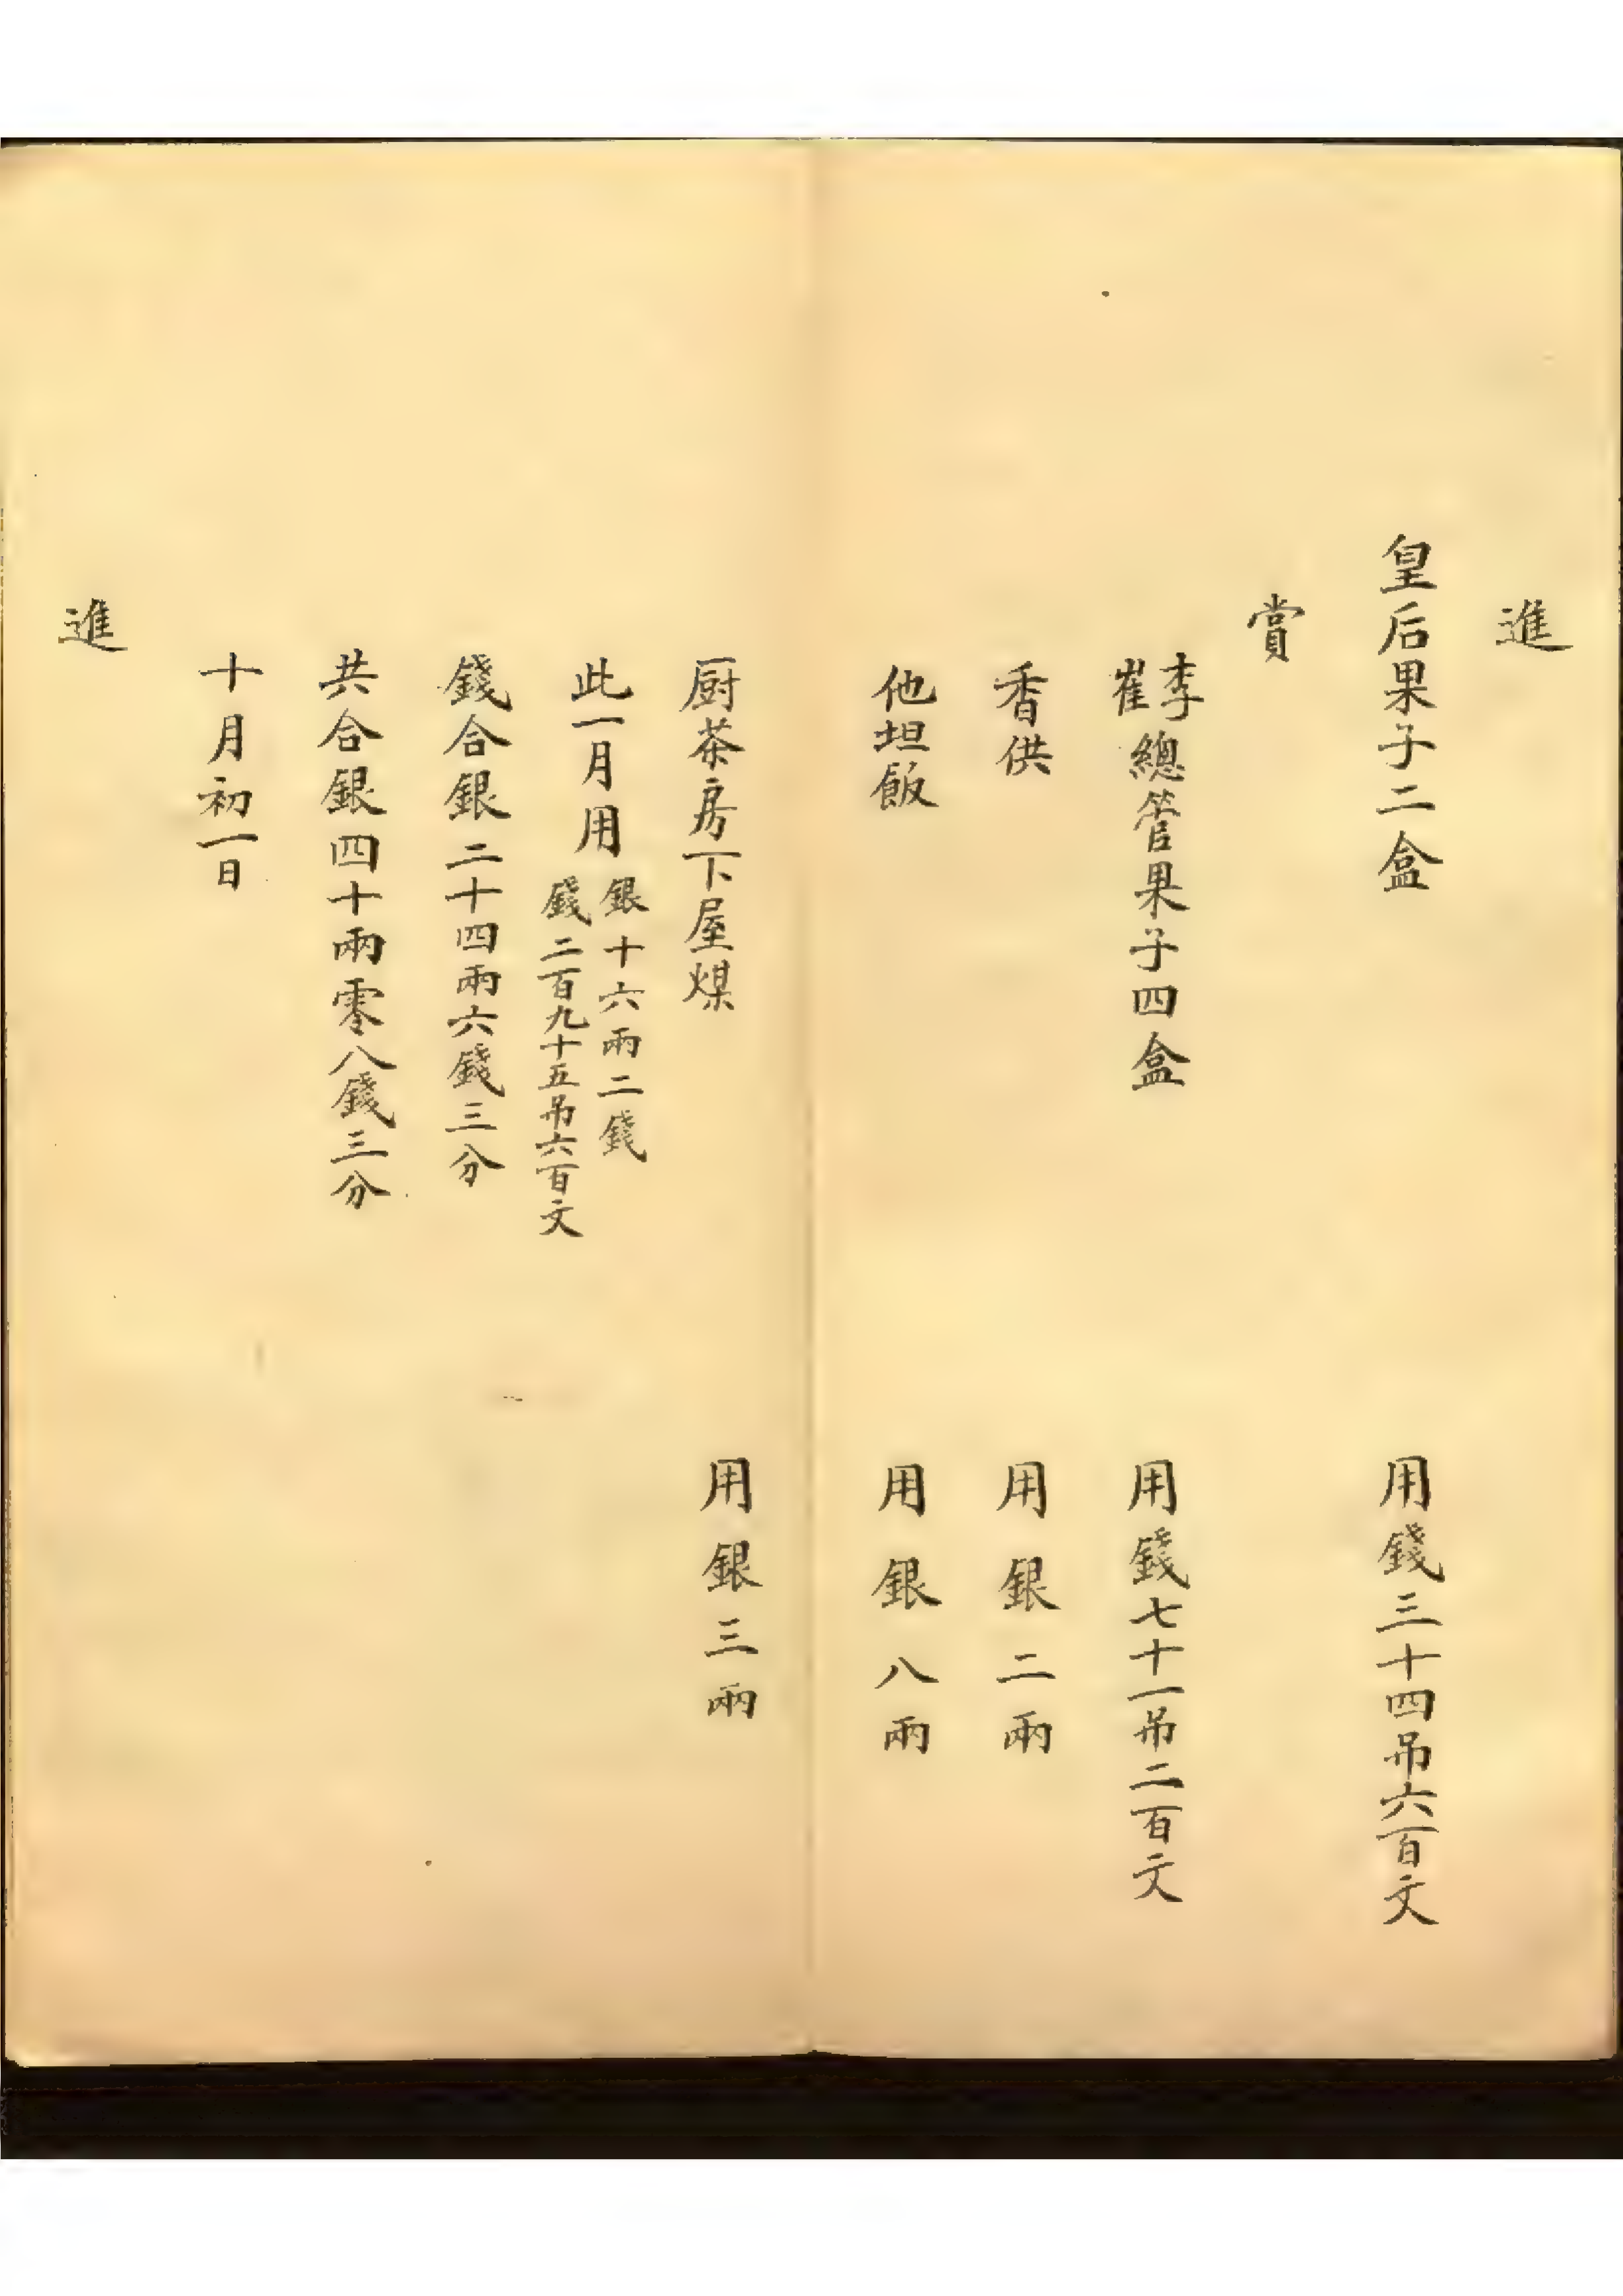 進
皇后果子二盒 用錢三十四吊六百文
賞
李崔總管果子四盒 用錢七十一吊二百文
香供 用銀二兩
他坦飯 用銀八兩
厨茶房下屋煤 用銀三兩
此一月用 銀十六兩二錢 錢二百九十五吊六百文
錢合銀二十四兩六錢三分
共合銀四十兩零八錢三分
十月初一日
進